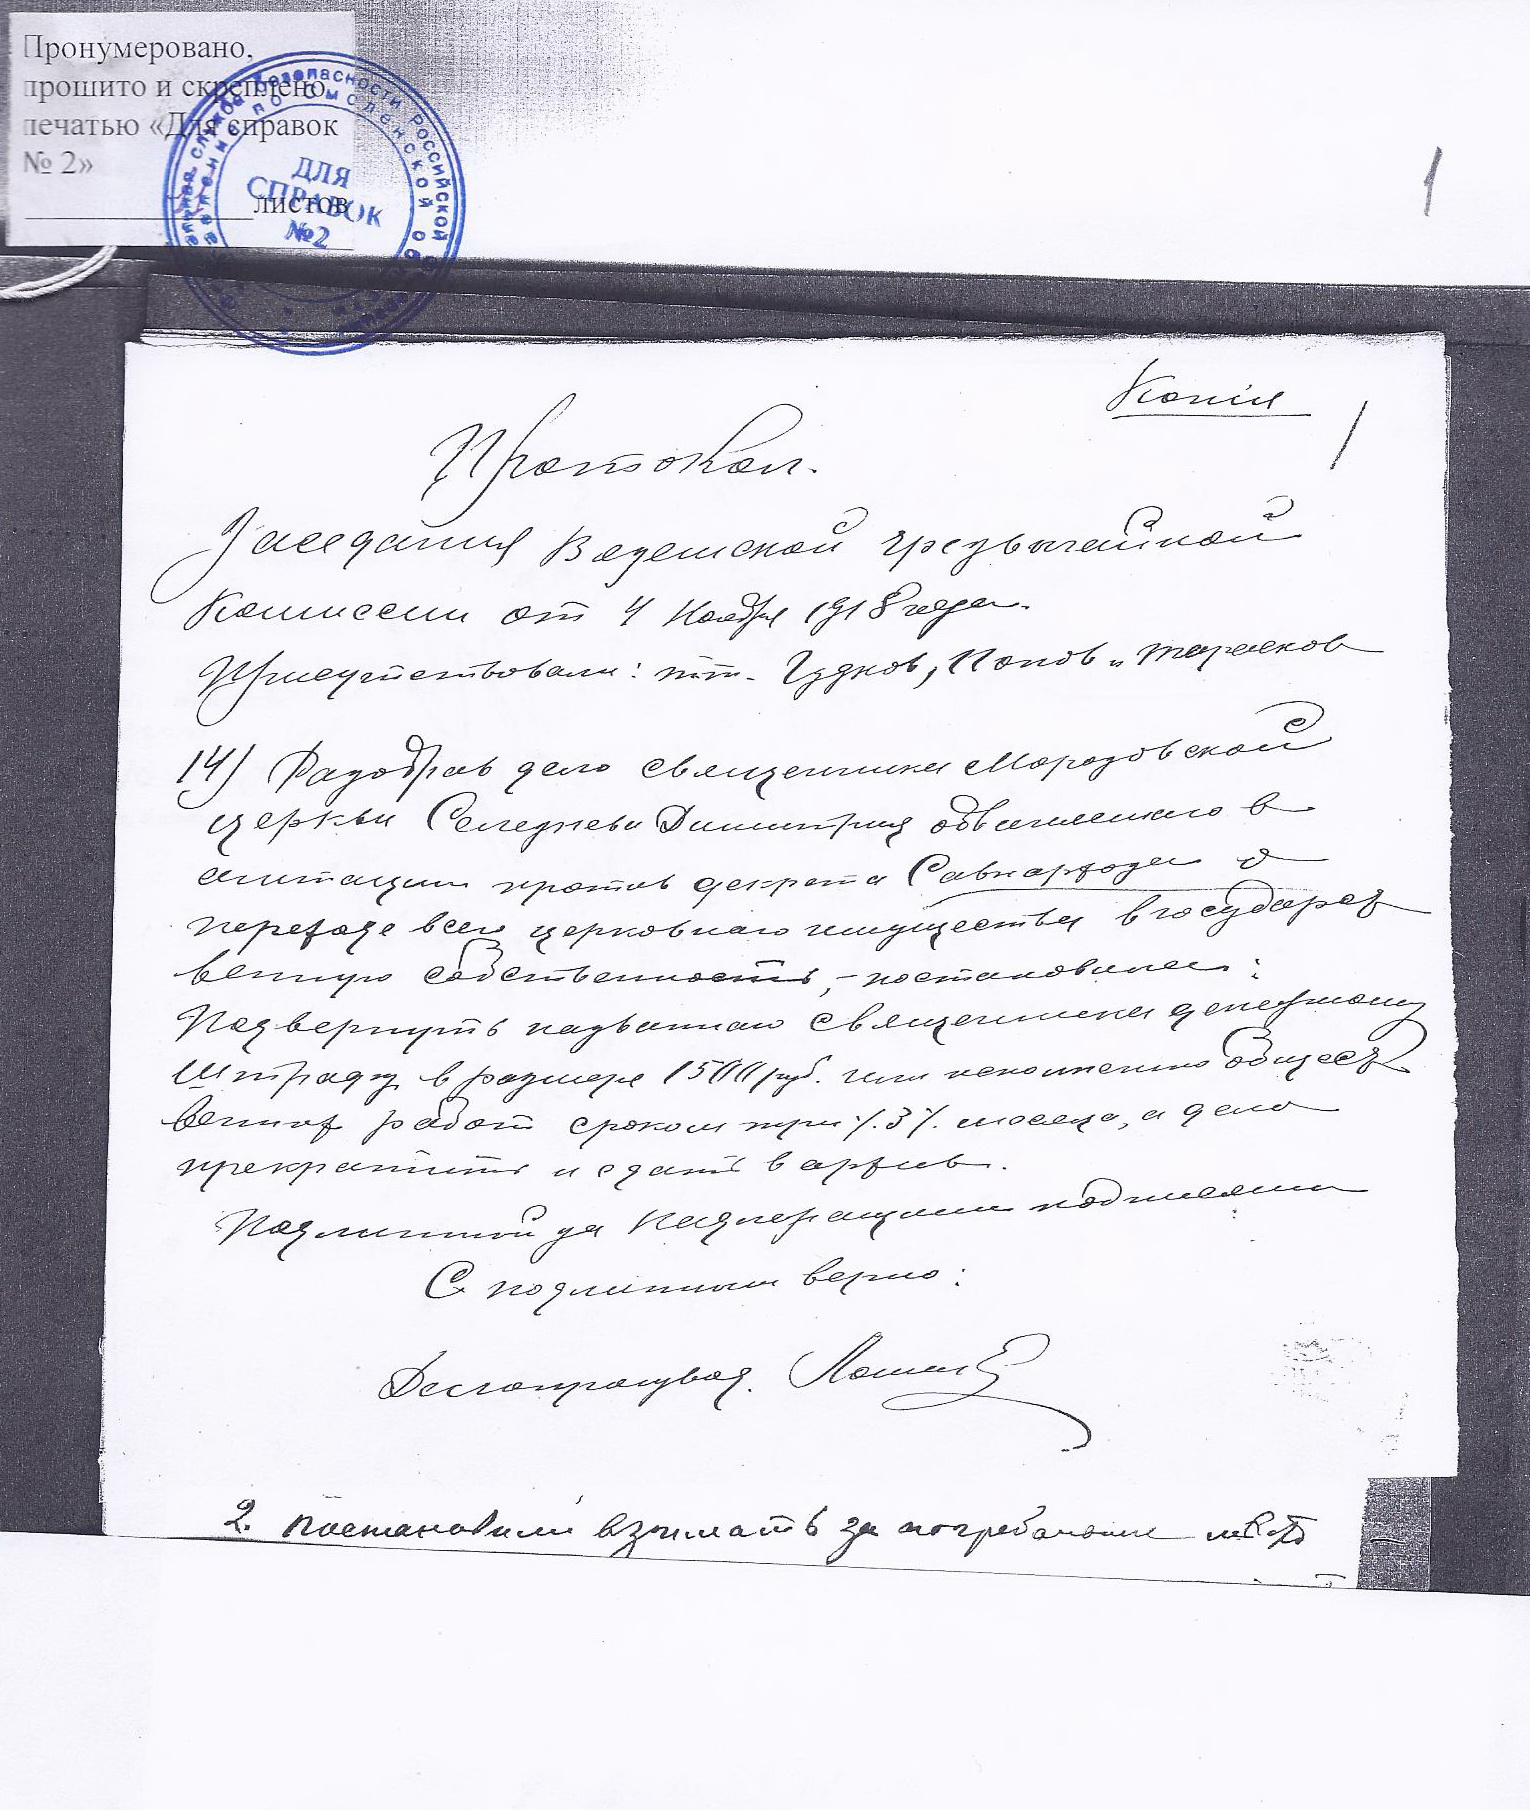 Пронумеровано,
прошито и скреплено
печатью «Для справок
№ 2»
листов
ДЛЯ
СПРАВОК
№2
1
Копія
1
Протокол.
Заседания Вяземской Чрезвычайной
Комиссии от 4 Ноября 1918 года.
Присутствовали: тт. Гудков, Попов и Тарасков
14) Разобрав дело священника Морозовской
церкви Селезнева Димитрия обвиняемаго в
агитации против декрета Совнархода о
переходе всего церковнаго имущества в государст
венную собственность, - постановила:
Подвергнуть названнаго священника денежному
штрафу в размере 1500 руб. или исполнению общест
венных работ сроком три /.3/. месяца, а дело
прекратить и сдать в архив.
Подлинной за надлежащими подписями
С подлинным верно:
Делопроизвод.
2. Постановили взимать за погребальные места